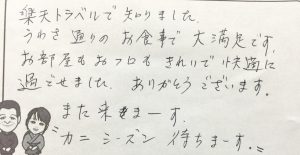 楽天トラベルで知りました。
うわさ通りのお食事で大満足です。
お部屋もおフロもきれいで快適に
過ごせました。ありがとうございます。
また来まーす。
"カニシーズン待ちまーす。"